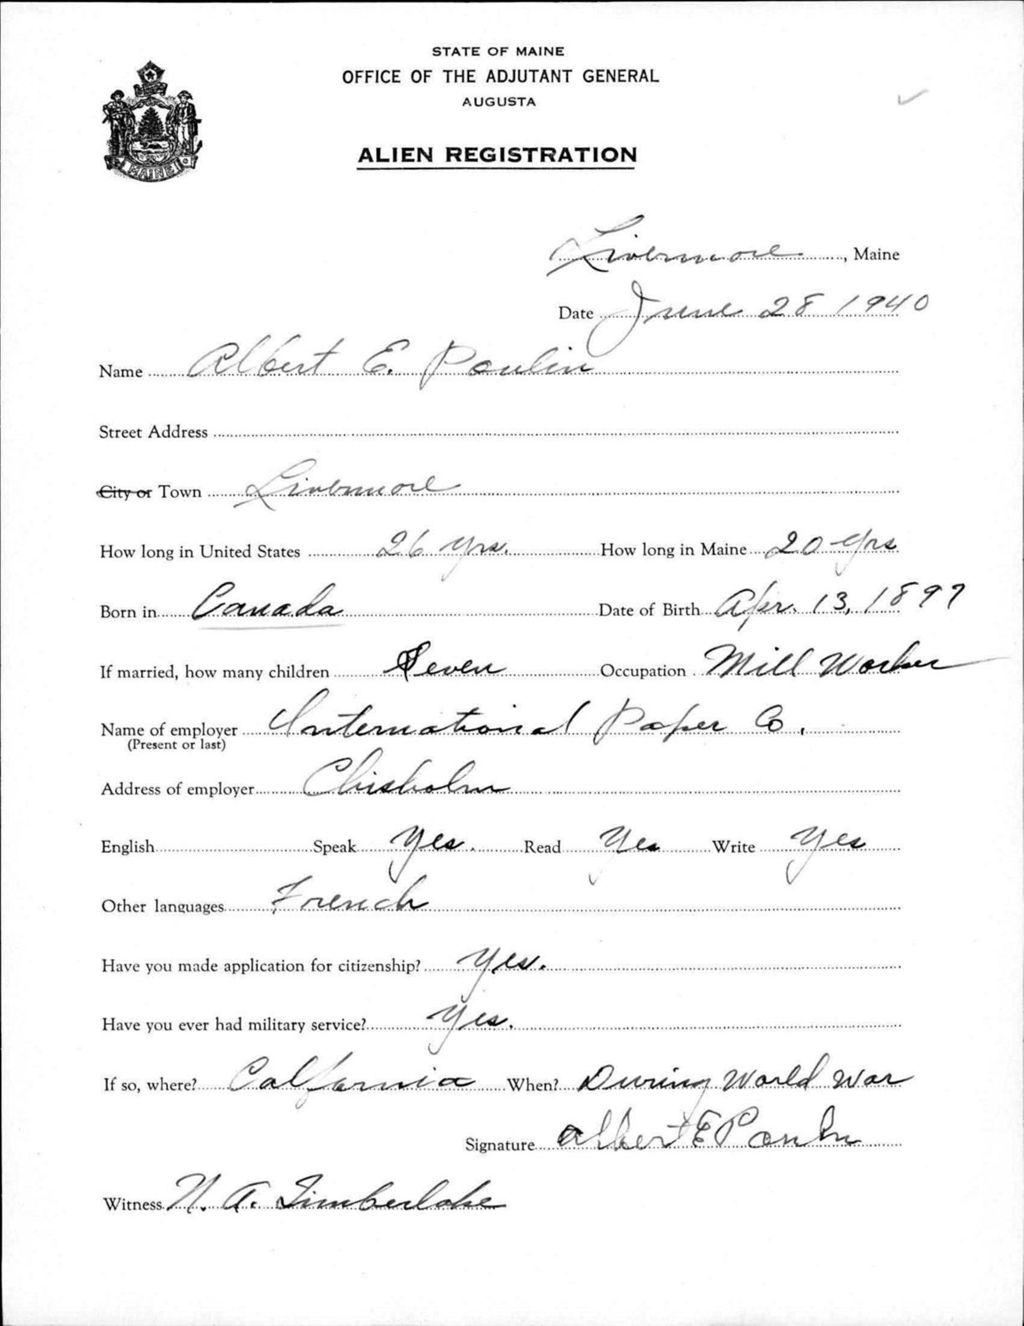 STATE OF MAINE
OFFICE OF THE ADJUTANT GENERAL
AUGUSTA
ALIEN REGISTRATION
MAINE
Livermore, Maine
Date June 28 1940
Name Albert E. Poulin
Street Address
City or Town Livermore
How long in United States 26 yrs. How long in Maine 20 yrs
Born in Canada Date of Birth Apr. 13, 1897
If married, how many children Seven Occupation Mill Worker
Name of employer International Paper Co.
(Present or last)
Address of employer Chisholm
English Speak Yes. Read Yes Write Yes
Other languages French
Have you made application for citizenship? Yes.
Have you ever had military service? Yes.
If so, where? California When? During World War
Signature Albert E Poulin
Witness N. A. Timberlake